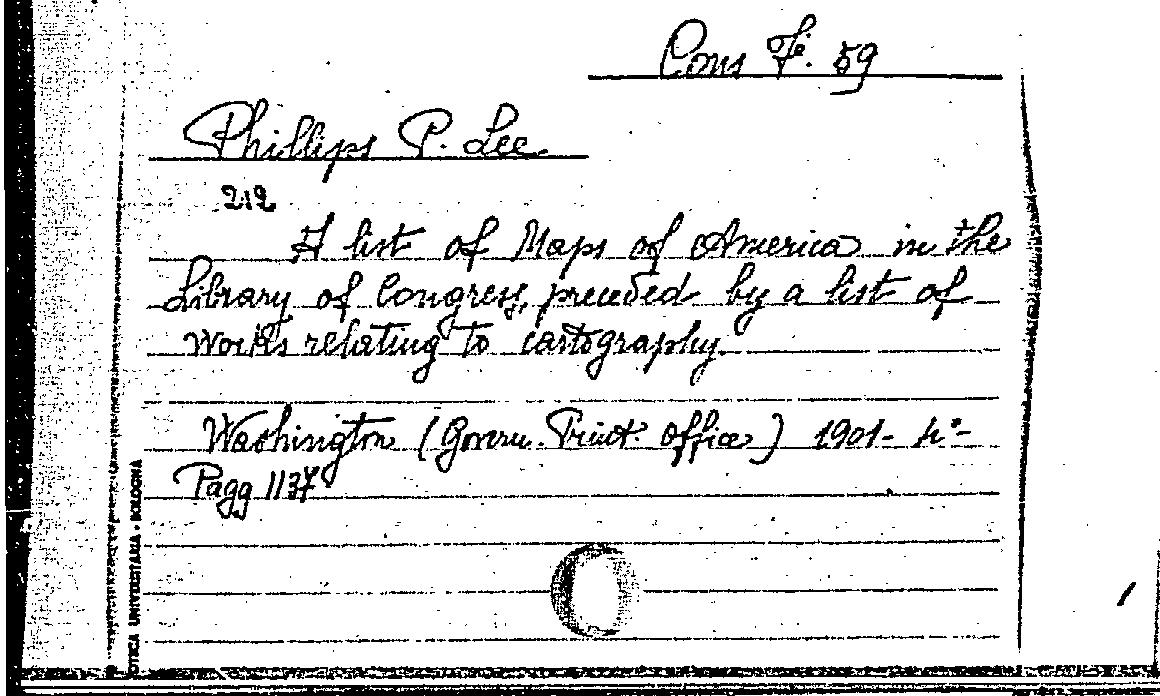 Cons Fi. 59
Phillips P. Lee.
212
A list of Maps of America in the
Library of Congress, preceded by a list of
Works relating to cartography.
Washington (Govern. Print. Office) 1901- 4°-
Pagg 1137
OTECA UNIVERSITARIA - BOLOGNA